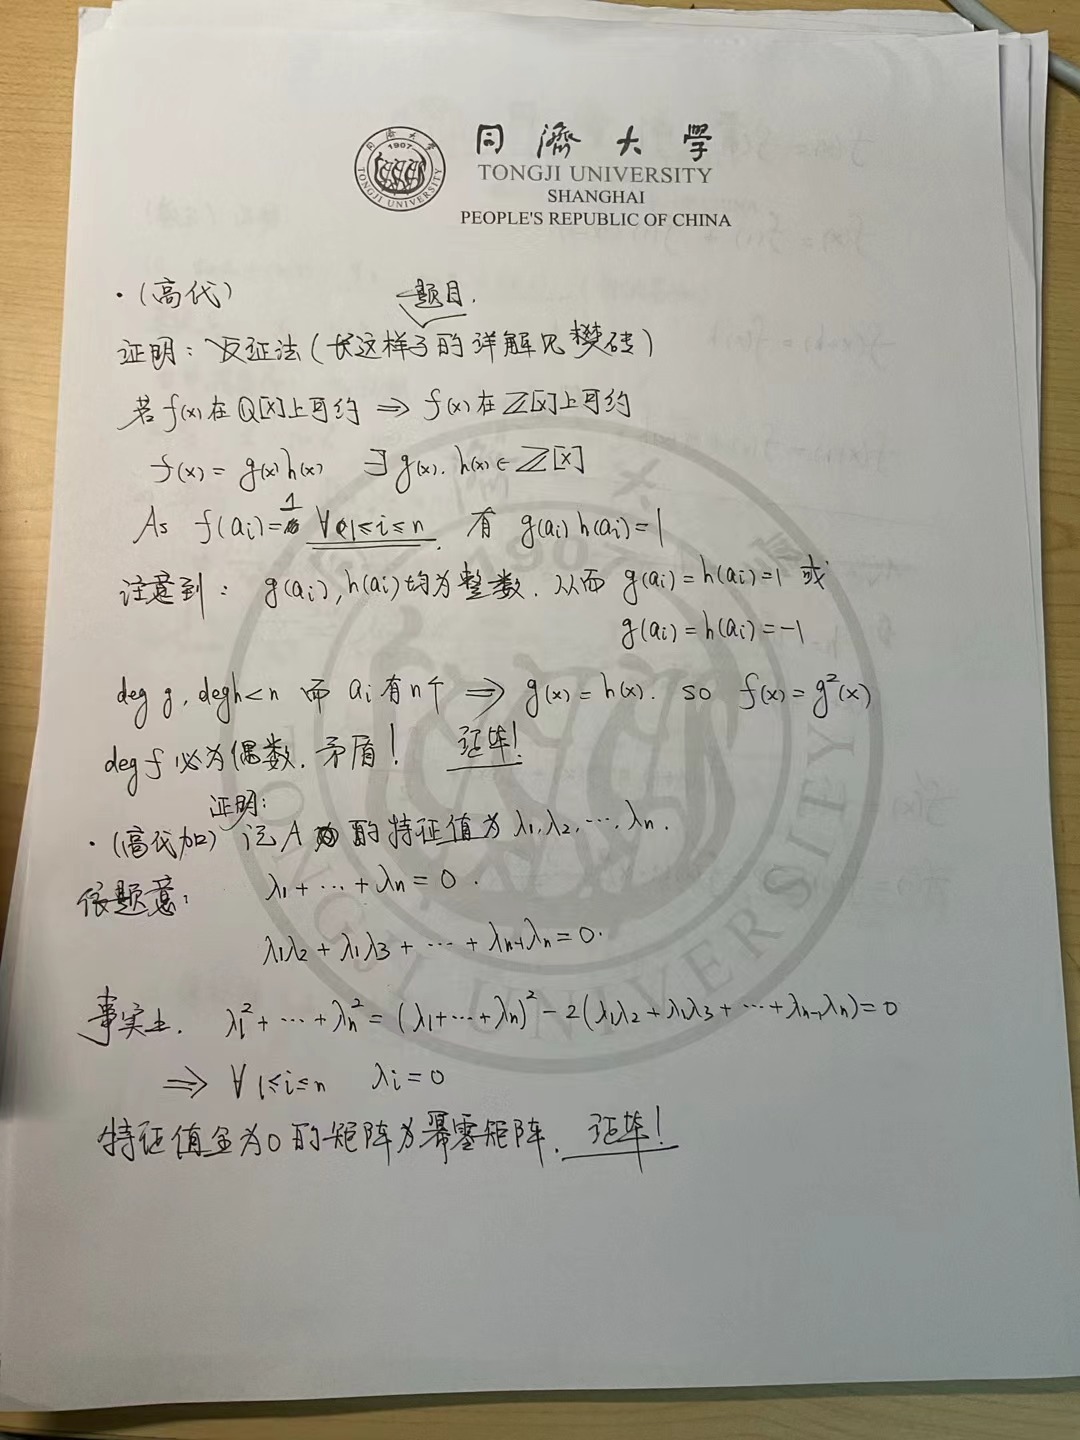 同濟大學
TONGJI UNIVERSITY
SHANGHAI
PEOPLE'S REPUBLIC OF CHINA
·(高代)
题目.
证明：反证法(长这样子的详解见樊砖)
若f(x)在Q[x]上可约 ⇒ f(x)在ℤ[x]上可约
f(x) = g(x)h(x) ∃ g(x). h(x) ∈ ℤ[x]
As f(ai)=1 ∀ 1≤i≤n. 有 g(ai)h(ai)=1
注意到：g(ai), h(ai)均为整数. 从而 g(ai)=h(ai)=1 或
g(ai)=h(ai)=-1
deg g, deg h<n 而 ai有n个 ⇒ g(x)=h(x). so f(x)=g²(x)
deg f 必为偶数. 矛盾! 证毕!
证明:
·(高代加) 记A的特征值为λ1,λ2,…,λn.
依题意: λ1+…+λn=0.
λ1λ2+λ1λ3+…+λn-1λn=0.
事实上. λ1²+…+λn²=(λ1+…+λn)²-2(λ1λ2+λ1λ3+…+λn-1λn)=0
⇒ ∀1≤i≤n λi=0
特征值全为0的矩阵为幂零矩阵. 证毕!